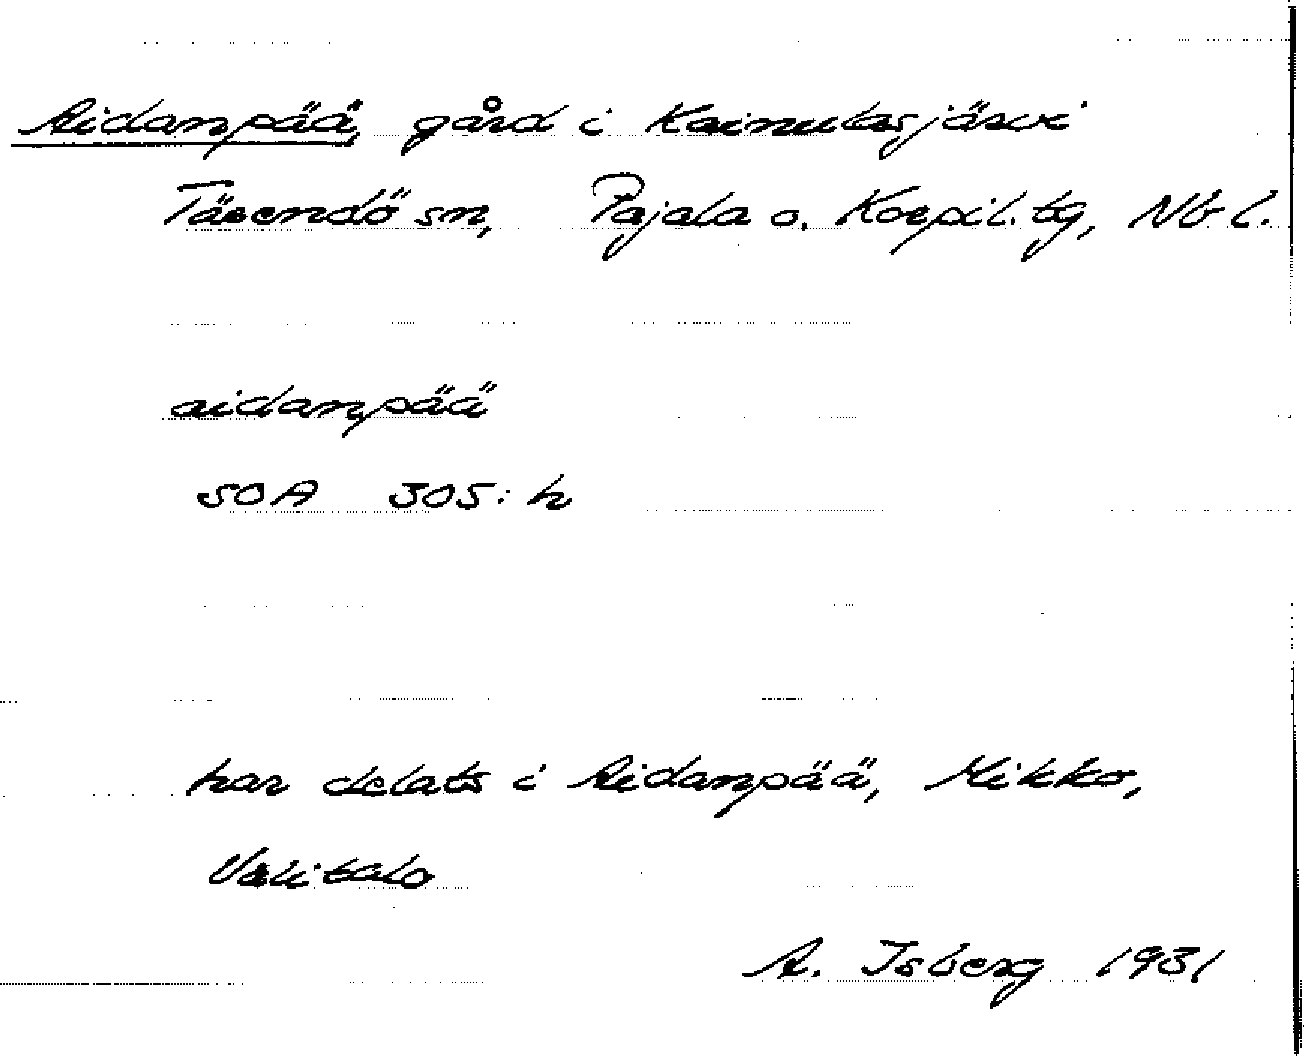 Aidanpää, gård i Kainulasjärvi
Tärendö sn, Pajala o. Korpil. tg, Nb l.
aidanpää
SOA 305:h
har delats i Aidanpää, Mikko,
Välitalo
A. Isberg 1931